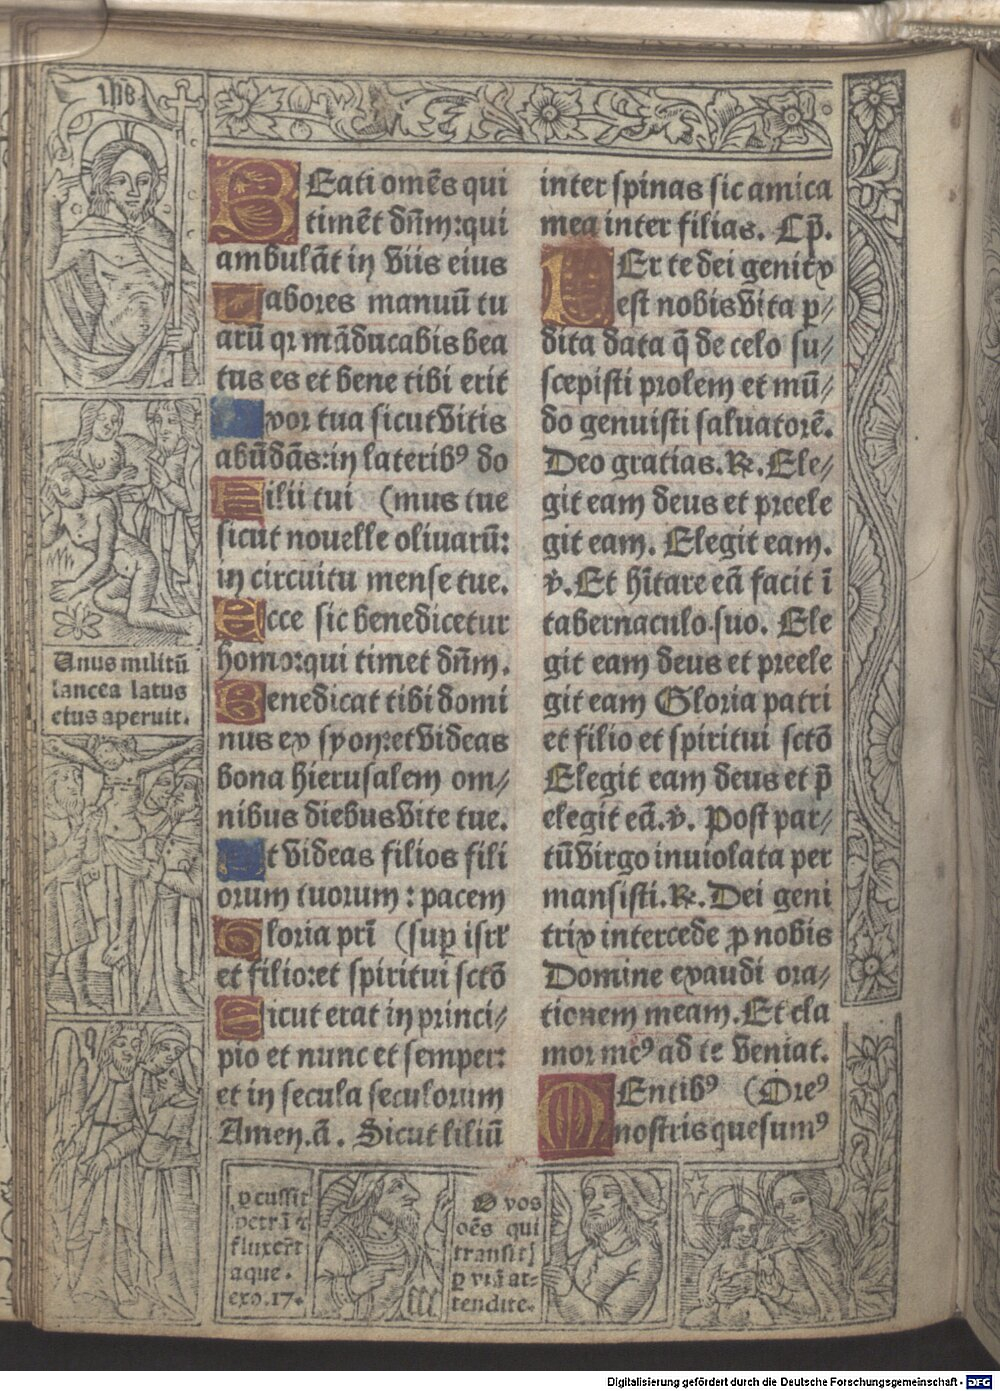 IHS
BEati omēs qui
timēt dñm:qui
ambulāt in viis eius
Labores manuū tu
arū qr māducabis bea
tus es et bene tibi erit
Uxor tua sicut vitis
abūdās:in lateribꝰ do
Filii tui (mus tue
sicut nouelle oliuarū:
in circuitu mense tue.
Ecce sic benedicetur
homo:qui timet dñm.
Benedicat tibi domi
nus ex syon:et videas
bona hierusalem om/
nibus diebus vite tue.
Et videas filios fili
orum tuorum : pacem
Gloria pr̄i (sup̄ isrl̓
et filio:et spiritui sctō
Sicut erat in princi/
pio et nunc et semper:
et in secula seculorum
Amen.ā. Sicut liliū
inter spinas sic amica
mea inter filias. Cp̄.
PEr te dei genitx
est nobis vita p̱/
dita data q̄ de celo su/
scepisti prolem et mū/
do genuisti saluatorē.
Deo gratias.℟.Ele/
git eam deus et preele
git eam. Elegit eam.
℣.Et hītare eā facit ī
tabernaculo suo. Ele
git eam deus et preele
git eam Gloria patri
et filio et spiritui sctō
Elegit eam deus et p̄
elegit eā.℣. Post par/
tū virgo inuiolata per
mansisti.℟.Dei geni
trix intercede ꝓ nobis
Domine exaudi ora/
tionem meam.Et cla
mor meꝰ ad te veniat.
MEntibꝰ (Oreꝰ
nostris quesumꝰ
Unus militū
lancea latus
eius aperuit.
p̱cussit
petrā ⁊
fluxerūt
aque.
exo.17.
O vos
oēs qui
transitꝭ
p̱ viā at=
tendite.
Digitalisierung gefördert durch die Deutsche Forschungsgemeinschaft - DFG